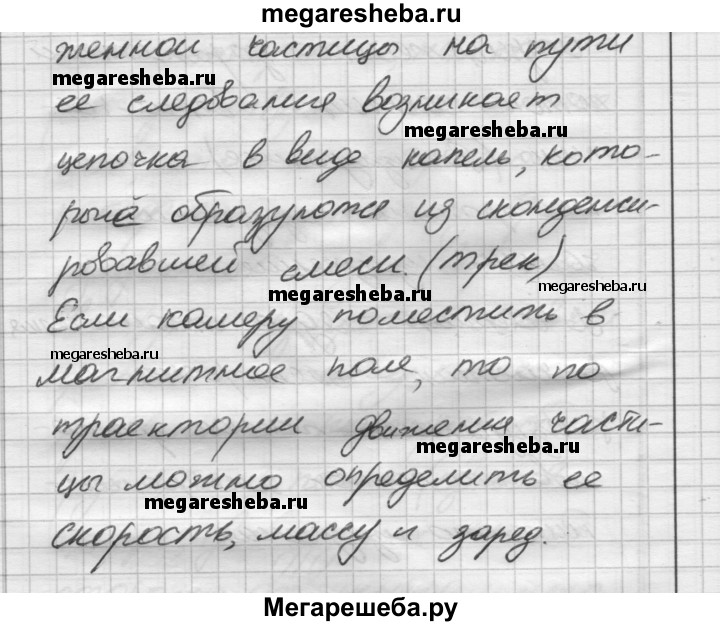 megaresheba.ru
женной частицы на пути
megaresheba.ru
ее следования возникает
megaresheba.ru
цепочка в виде капель, кото-
рый образуются из сконденси-
ровавшей смеси. (трек)
megaresheba.ru
megaresheba.ru
Если камеру поместить в
megaresheba.ru
магнитное поле, то по
траектории движения части-
megaresheba.ru
цы можно определить ее
megaresheba.ru
скорость, массу и заряд.
Мегарешеба.ру